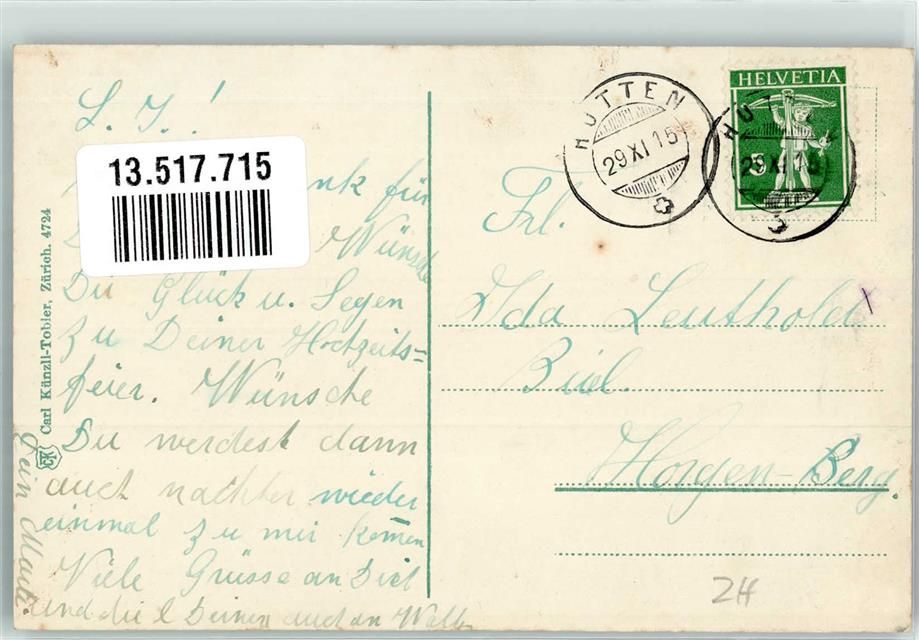 L. I.!
13.517.715
nk für
Wünsche
Du Glück u. Segen
zu Deiner Hochzeits=
feier. Wünsche
Du werdest dann
auch nachher wieder
einmal zu mir kom̄en
Viele Grüsse an Dich
und die l Deinen auch an
Dein
Carl Künzli-Tobler, Zürich. 4724
CK
HÜTTEN
29 XI 15
HELVETIA
5
HÜ
29 XI 15
Frl.
Ida Leuthold
Biel.
Horgen-Berg.
2H